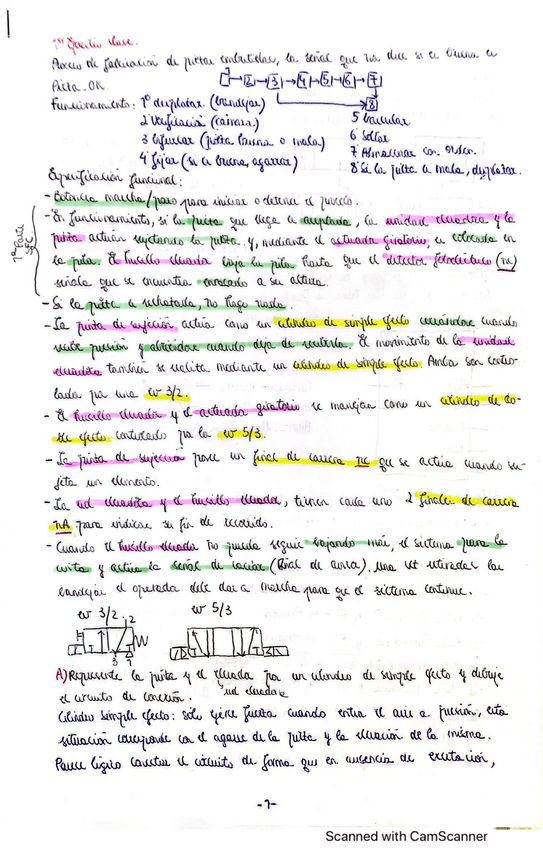 1er Ejercicio clase.
Proceso de fabricación de piezas embutidas, la señal que nos dice si es buena es
Pieza_OK
2 3 4 5 6 7
8
Funcionamiento: 1º desplazar (bandejas)
2 Verificación (cámara)
3 Expulsar (pieza buena o mala)
4 fijar (si es buena, agarrar)
5 bascular
6 Soltar
7 Almacenar con orden.
8 Si la pieza es mala, desplazar.
Especificación funcional:
1ª Parte SFC
- Botonera marcha/paro para iniciar o detener el proceso.
- En funcionamiento, si la pieza que llega es aceptada, la unidad elevadora y la
pinza actúan sujetando la pieza y, mediante el actuador giratorio, es colocada en
la pila. El husillo elevador baja la pila hasta que el detector fotoeléctrico (nc)
señala que se encuentra enrasado a su altura.
- Si la pieza es rechazada, no hago nada.
- La pinza de sujeción actúa como un cilindro de simple efecto cerrándose cuando
recibe presión y abriéndose cuando deja de recibirla. El movimiento de la unidad
elevadora también se realiza mediante un cilindro de simple efecto. Ambas son contro-
ladas por una ev 3/2.
- El husillo elevador y el actuador giratorio se manejan como un cilindro de do-
ble efecto controlado por la ev 5/3.
- La pinza de sujeción posee un final de carrera nc que se activa cuando su-
jeta un elemento.
- La ud elevadora y el husillo elevador, tienen cada uno 2 finales de carrera
nA para indicar su fin de recorrido.
- Cuando el husillo elevador no puede seguir bajando más, el sistema para la
cinta y activa la señal de vaciar (señal de aviso), una vez retiradas las
bandejas el operador debe dar a marcha para que el sistema continue.
ev 3/2
ev 5/3
2
3 1
A) Represente la pinza y el elevador por un cilindro de simple efecto y dibuje
ud elevadora
el circuito de conexión.
Cilindro simple efecto: sólo ejerce fuerza cuando entra el aire a presión, esta
situación corresponde con el agarre de la pieza y la elevación de la misma.
Parece lógico conectar el circuito de forma que en ausencia de excitación,
-1-
Scanned with CamScanner